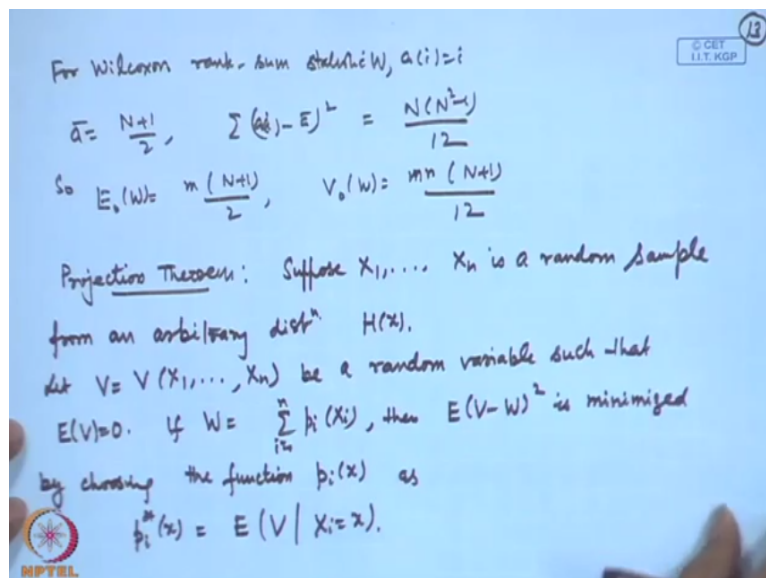 13
© CET
I.I.T. KGP
For Wilcoxon rank-sum statistic W, a(i)=i
ā = N+1/2, Σ(a(i) – ā)² = N(N²-1)/12
So E₀(W) = m(N+1)/2, V₀(W) = mn(N+1)/12
Projection Theorem: Suppose X₁,.... Xn is a random sample
from an arbitrary distⁿ H(x).
Let V = V(X₁,..., Xn) be a random variable such that
E(V)=0. If W = Σ pᵢ(Xᵢ), then E(V-W)² is minimized
by choosing the function pᵢ(x) as
pᵢ*(x) = E(V | Xᵢ=x).
NPTEL